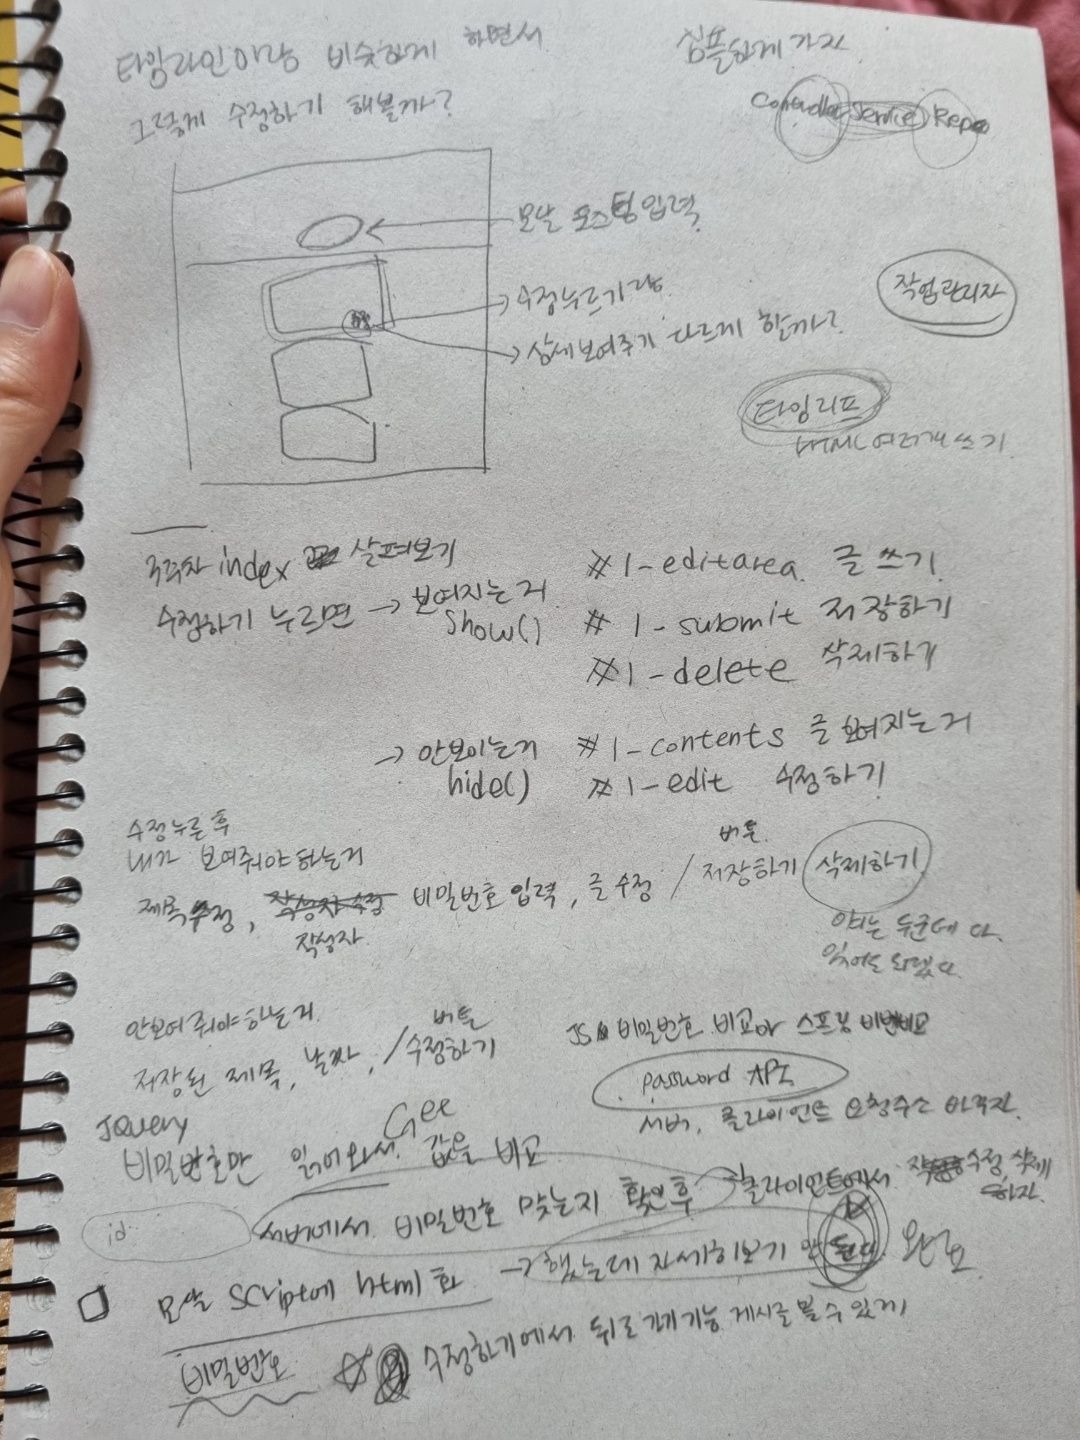 타임라인이랑 비슷하게 하면서
심플하게 가자
그렇게 수정하기 해볼까?
Controller Service Repo
모달 포스팅입력
수정누르기랑
상세보여주기 다르게 할까?
작업관리자
타임리프
HTML 여러개 쓰기
index 살펴보기
수정하기 누르면 → 보여지는거
show()
#1-editarea 글쓰기
#1-submit 저장하기
#1-delete 삭제하기
→ 안보이는거
hide()
#1-contents 글 보여지는거
#1-edit 수정하기
수정누른후
내가 보여줘야하는거
제목수정, 작성자 수정 비밀번호입력, 글수정 / 저장하기 삭제하기
버튼
작성자
안보여줘야하는거
저장된 제목, 날짜, / 수정하기
버튼
JS 비밀번호 비교아 스프링 비번비교
password API
서버, 클라이언트 요청주소 바꾸자.
JQuery
비밀번호만 읽어와서 값을 비교
Get
id
서버에서 비밀번호 맞는지 확인후 클라이언트에서 수정 삭제
하자.
모달 script에 html화 → 했는데 자세히보기 안 된다. 완료
비밀번호
수정하기에서 뒤로가기기능 게시글볼수있게